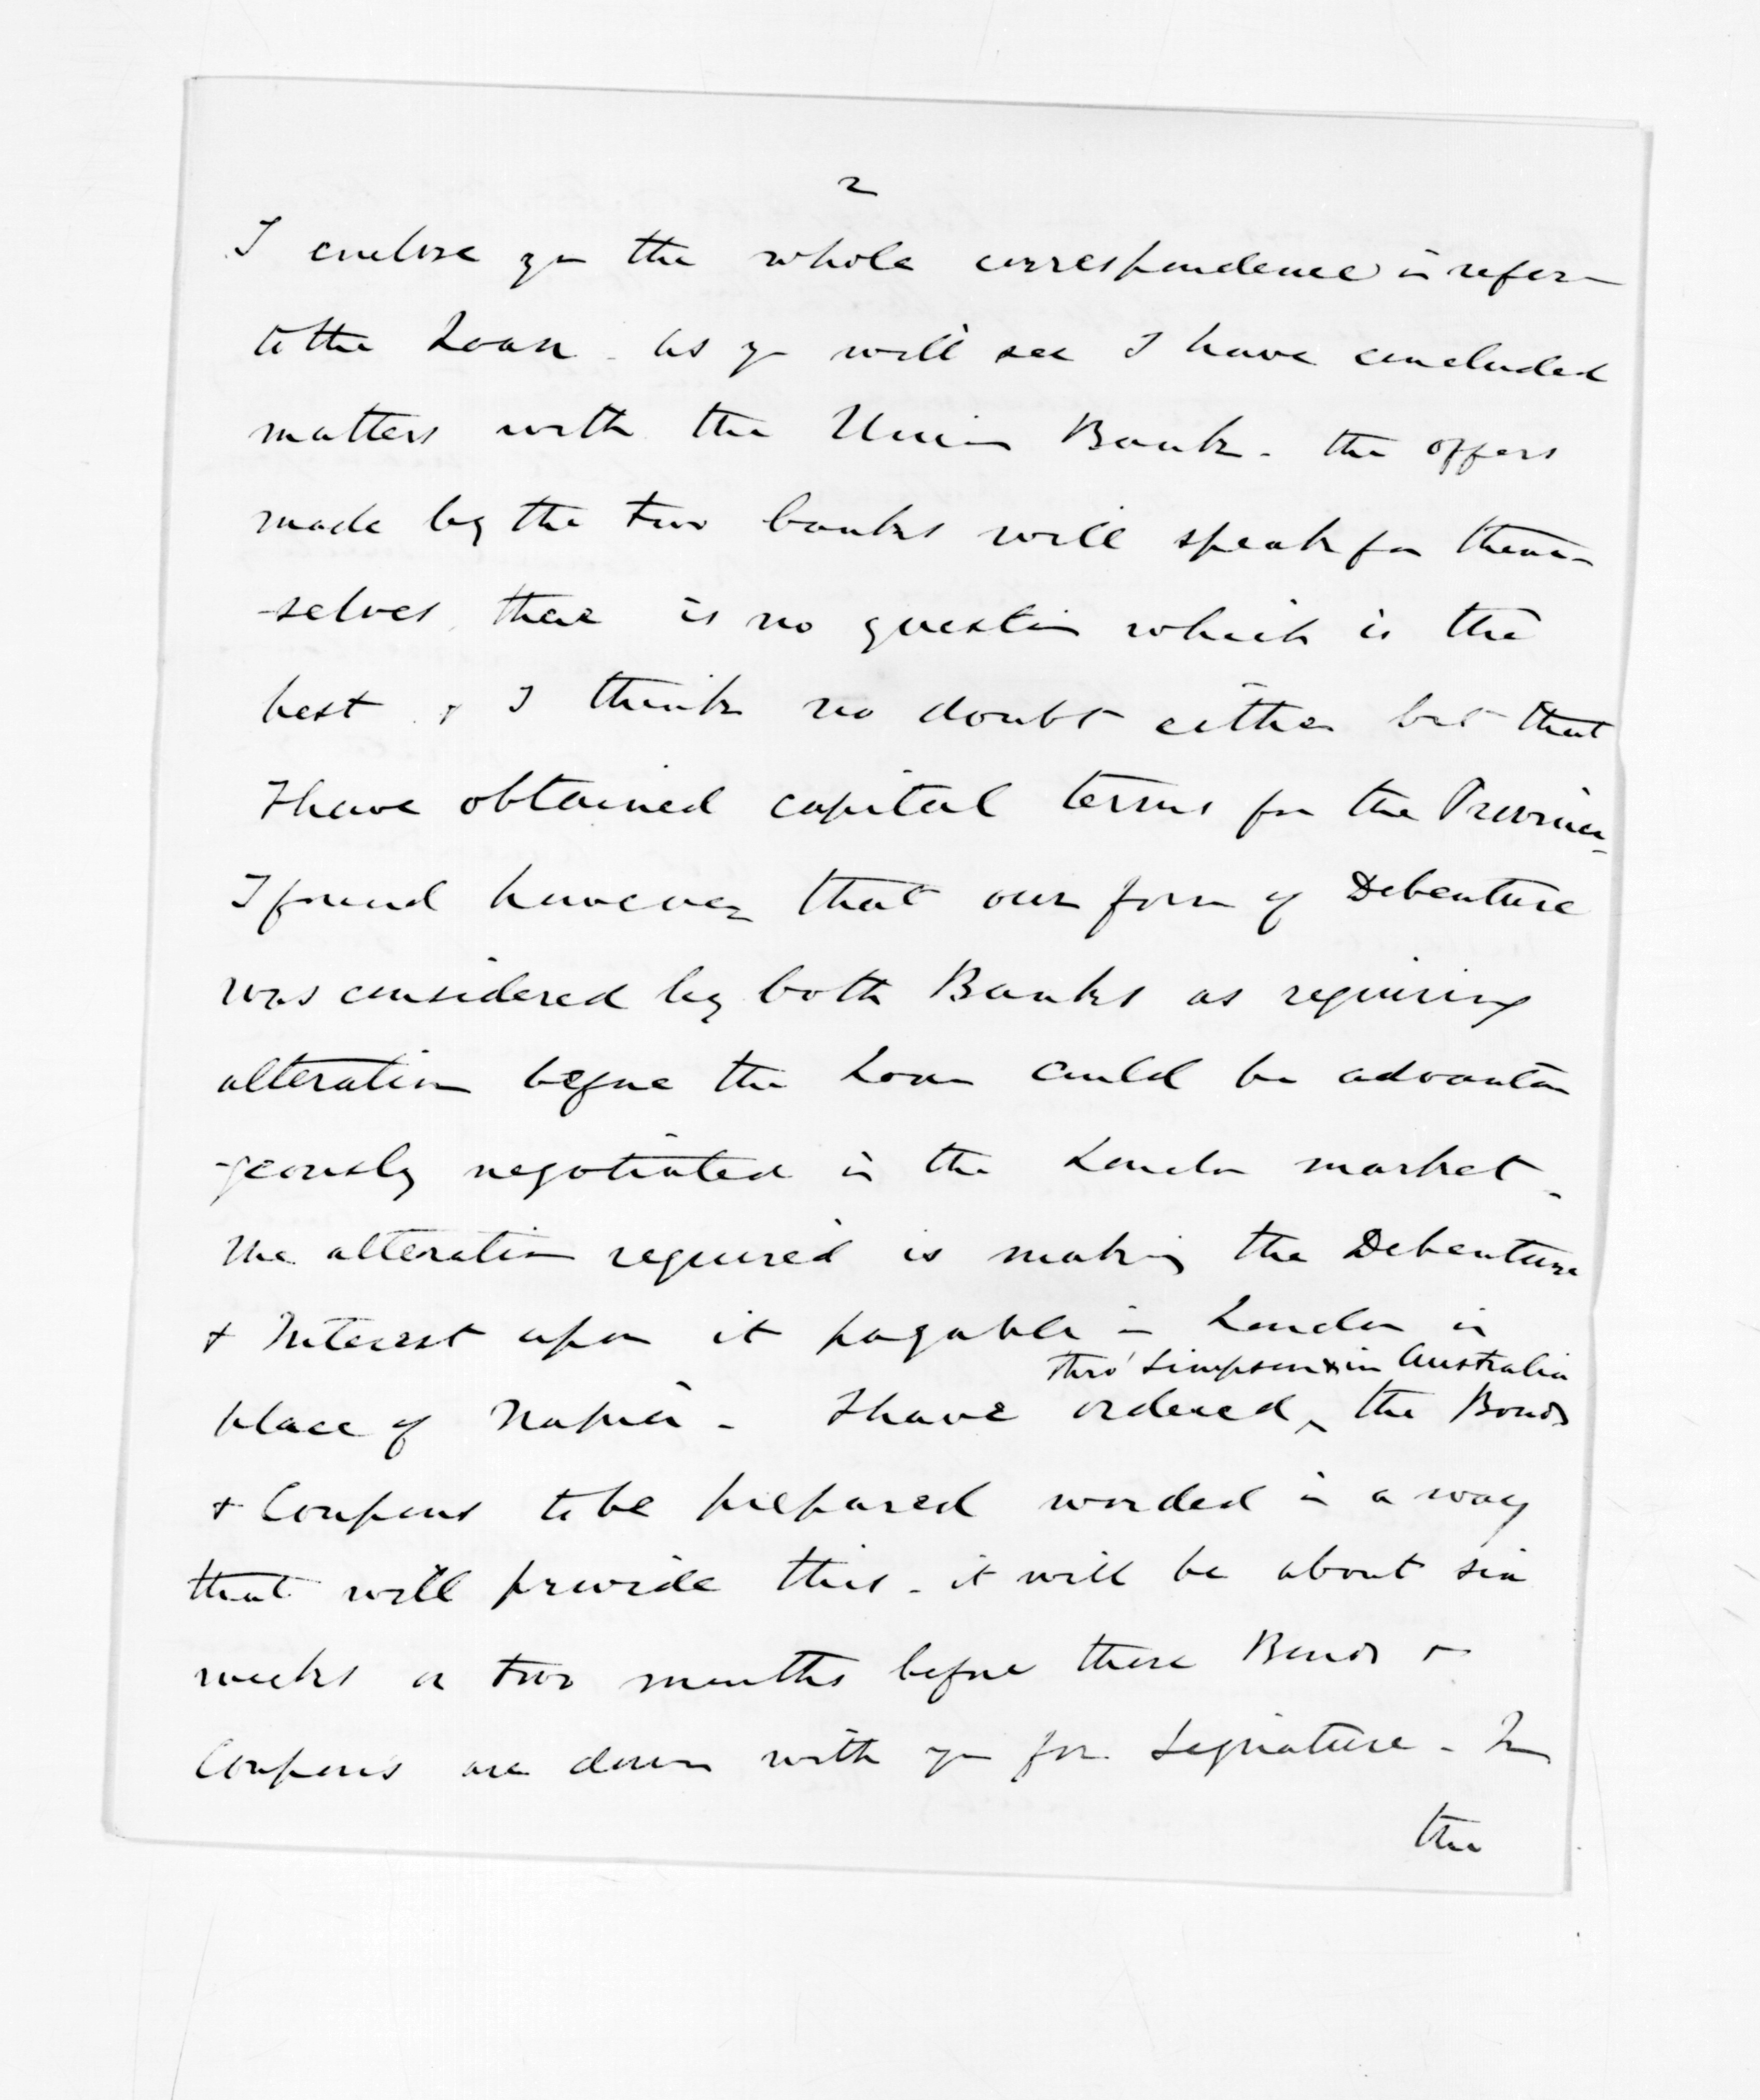 2
I enclose you the whole correspondence in refer
to the Loan - As yr will see I have concluded
matters with the Union Bank - the offers
made by the two banks will speak for them-
-selves, there is no question which is the
best & I think no doubt either but that
I have obtained capital terms for the Province -
I found however that our form of Debenture
was considered by both Banks as requiring
alteration before the Loan could be advanta
-geously negotiated in the London market -
The alteration required is making the Debenture
& Interest upon it payable in London in
thro' Simpson & in Australia
place of Napier - I have ordered ^ the Bonds
& Coupons to be prepared worded in a way
that will provide this - it will be about six
weeks or two months before these Bonds &
Coupons are down with you for Signature - In
the